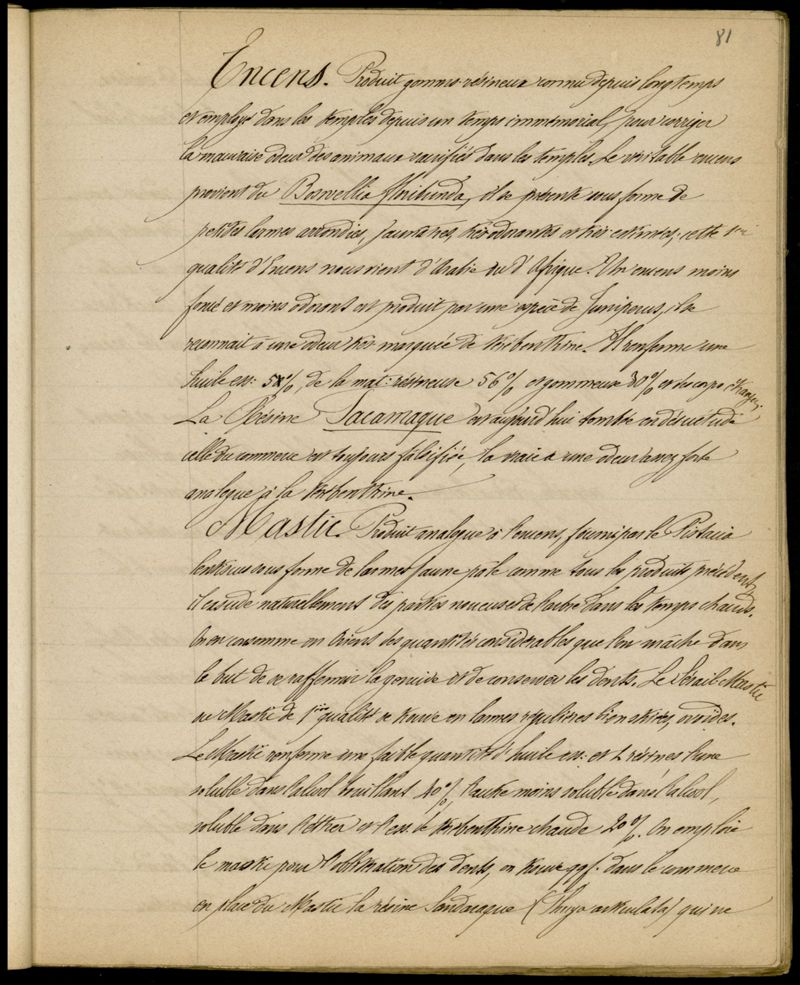 81
Encens. Produit gommo résineux connu depuis longtemps
et employé dans les temples depuis un temps immémorial, pour corriger
la mauvaise odeur des animaux sacrifiés dans les temples. Le véritable encens
provient du Boswellia floribunda, il se présente sous forme de
petites larmes arrondies, jaunatres, très odorantes et très estimées; cette
qualité d'Encens nous vient d'Arabie ou d'Afrique. Un encens moins
foncé et moins odorant est produit par une espèce de Juniperus, il se
reconnait à une odeur très marquée de térébenthine. Il renferme une
huile ess: 5%, de la mat: résineuse 56% et gommeuse 30% et des corps étrangers
La Résine Tacamaque est aujourd'hui tombée en désuetude
celle du commerce est toujours falsifiée, la vraie a une odeur assez forte
analogue à la térébenthine.
Mastic. Produit analogue à l'encens, fourni par le Pistacia
lentiscus sous forme de larmes jaune pâle comme tous les produits précédents,
il exsude naturellement des parties noueuses de l'arbre dans les temps chauds.
On en consomme en Orient des quantités considérables que l'on mâche dans
le but de se raffermir la gencive et de conserver les dents. Le Sérail-Mastic
ou Mastic de 1ère qualité se trouve en larmes régulières bien étirées, ovoides.
Le Mastic renferme une faible quantité d'huile ess: et 2 résines l'une
soluble dans l'alcool bouillant 40%, l'autre moins soluble dans l'alcool,
soluble dans l'éther et l'ess de térébenthine chaude 20%. On emploie
le mastic pour l'oblitération des dents, on trouve qqf. dans le commerce
en place du Mastic la résine Sandaraque (Thuya articulata) qui ne